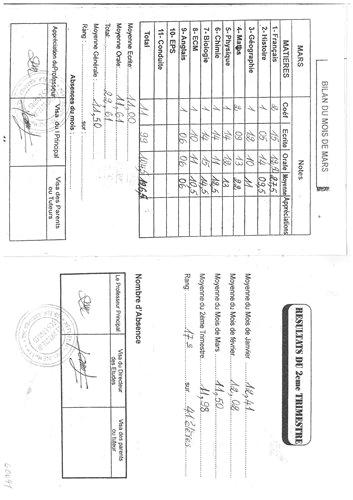 BILAN DU MOIS DE MARS
MARS Notes
MATIÈRES Coéf Ecrite Orale Moyenne Appréciations
1- Français 2 15
2- Histoire 1 05 09,5
3- Géographie 1 12 10 11
4- Maths 2 09 13 22
5- Physique 1 13
6- Chimie 1 14 11 12,5
7- Biologie 1 14 15 14,5
8- ECM 1 10 11 10,5
9- Anglais 1 06 06 06
10- EPS
11- Conduite
Total 11 99
Moyenne Ecrite: 11,00
Moyenne Orale: 11,61
Total: 22,61
Moyenne Générale: 11,50
Rang: sur
Absences du mois
Appréciation du Professeur Visa du Principal Visa des Parents ou Tuteurs
RESULTATS DU 2eme TRIMESTRE
Moyenne du Mois de Janvier 12,41
Moyenne du Mois de février 12,08
Moyenne du Mois de Mars 11,50
Moyenne du 2ème Trimestre 11,98
Rang: 17e sur 41 élèves
Nombre d'Absence
Le Professeur Principal Visa du Directeur des Etudes Visa des parents ou tuteur